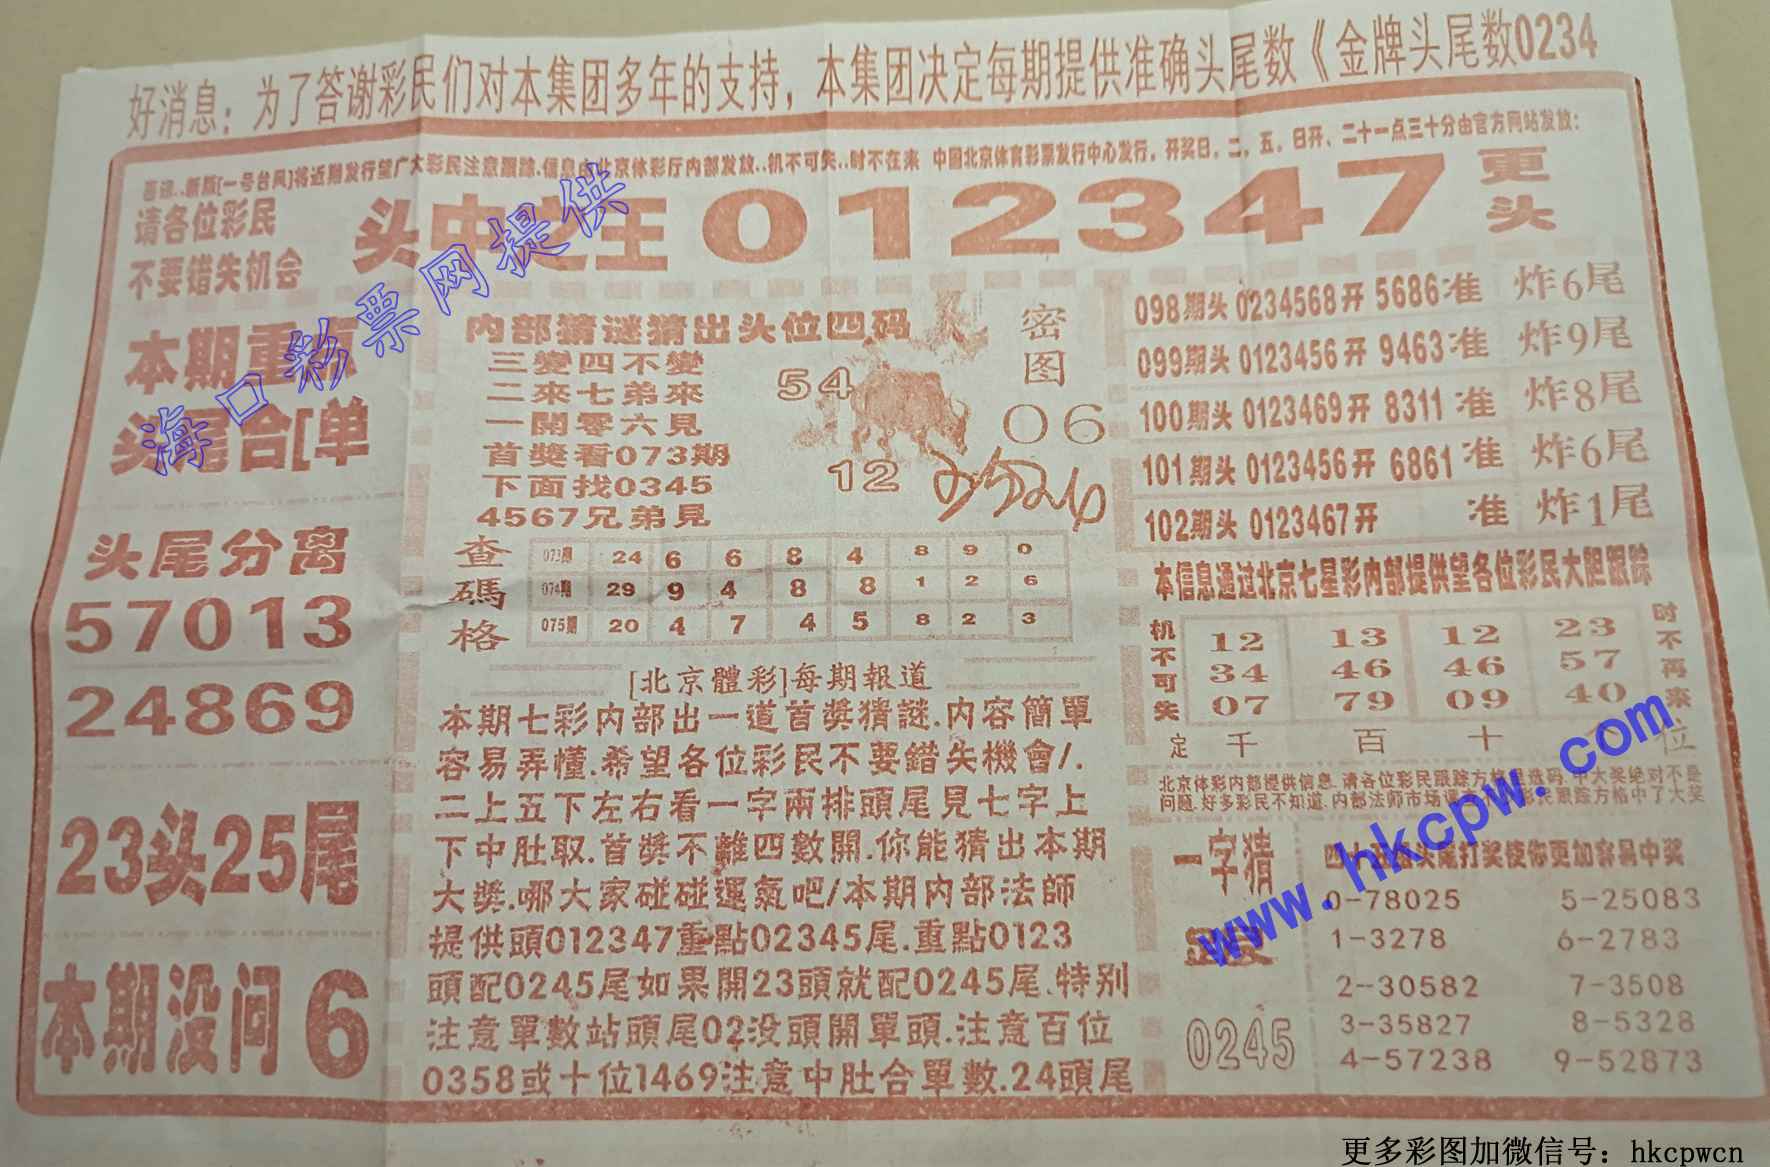 好消息：为了答谢彩民们对本集团多年的支持，本集团决定每期提供准确头尾数《金牌头尾数0234
喜讯..新版[一号台风]将近期发行望广大彩民注意跟踪.信息由北京体彩厅内部发放..机不可失..时不在来 中国北京体育彩票发行中心发行，开奖日，二，五，日开、二十一点三十分由官方网站发放：
请各位彩民
不要错失机会
头中之王012347
更
头
本期重点
头尾合[单
头尾分离
57013
24869
23头25尾
本期没问6
内部猜谜猜出头位四码
三變四不變
二來七弟來
一開零六見
首獎看073期
下面找0345
4567兄弟見
密
图
54
06
12
查
碼
格
073期 24 6 6 8 4 8 9 0
074期 29 9 4 8 8 1 2 6
075期 20 4 7 4 5 8 2 3
[北京體彩]每期報道
本期七彩内部出一道首獎猜謎.内容簡單
容易弄懂.希望各位彩民不要錯失機會/.
二上五下左右看一字兩排頭尾見七字上
下中肚取.首獎不離四數開.你能猜出本期
大獎.哪大家碰碰運氣吧/本期内部法師
提供頭012347重點02345尾.重點0123
頭配0245尾如果開23頭就配0245尾.特别
注意單數站頭尾02没頭開單頭.注意百位
0358或十位1469注意中肚合單數.24頭尾
098期头 0234568开 5686准 炸6尾
099期头 0123456开 9463准 炸9尾
100期头 0123469开 8311准 炸8尾
101期头 0123456开 6861准 炸6尾
102期头 0123467开 准 炸1尾
本信息通过北京七星彩内部提供望各位彩民大胆跟踪
机不可失
12 13 12 23
34 46 46 57
07 79 09 40
时不再来
定 千 百 十 个 位
北京体彩内部提供信息.请各位彩民跟踪方格里选码.中大奖绝对不是
问题.好多彩民不知道.内部法师市场
彩民跟踪方格中了大奖
一字猜
0245
打奖使你更加容易中奖
0-78025 5-25083
1-3278 6-2783
2-30582 7-3508
3-35827 8-5328
4-57238 9-52873
海口彩票网提供
www.hkcpw.com
更多彩图加微信号：hkcpwcn